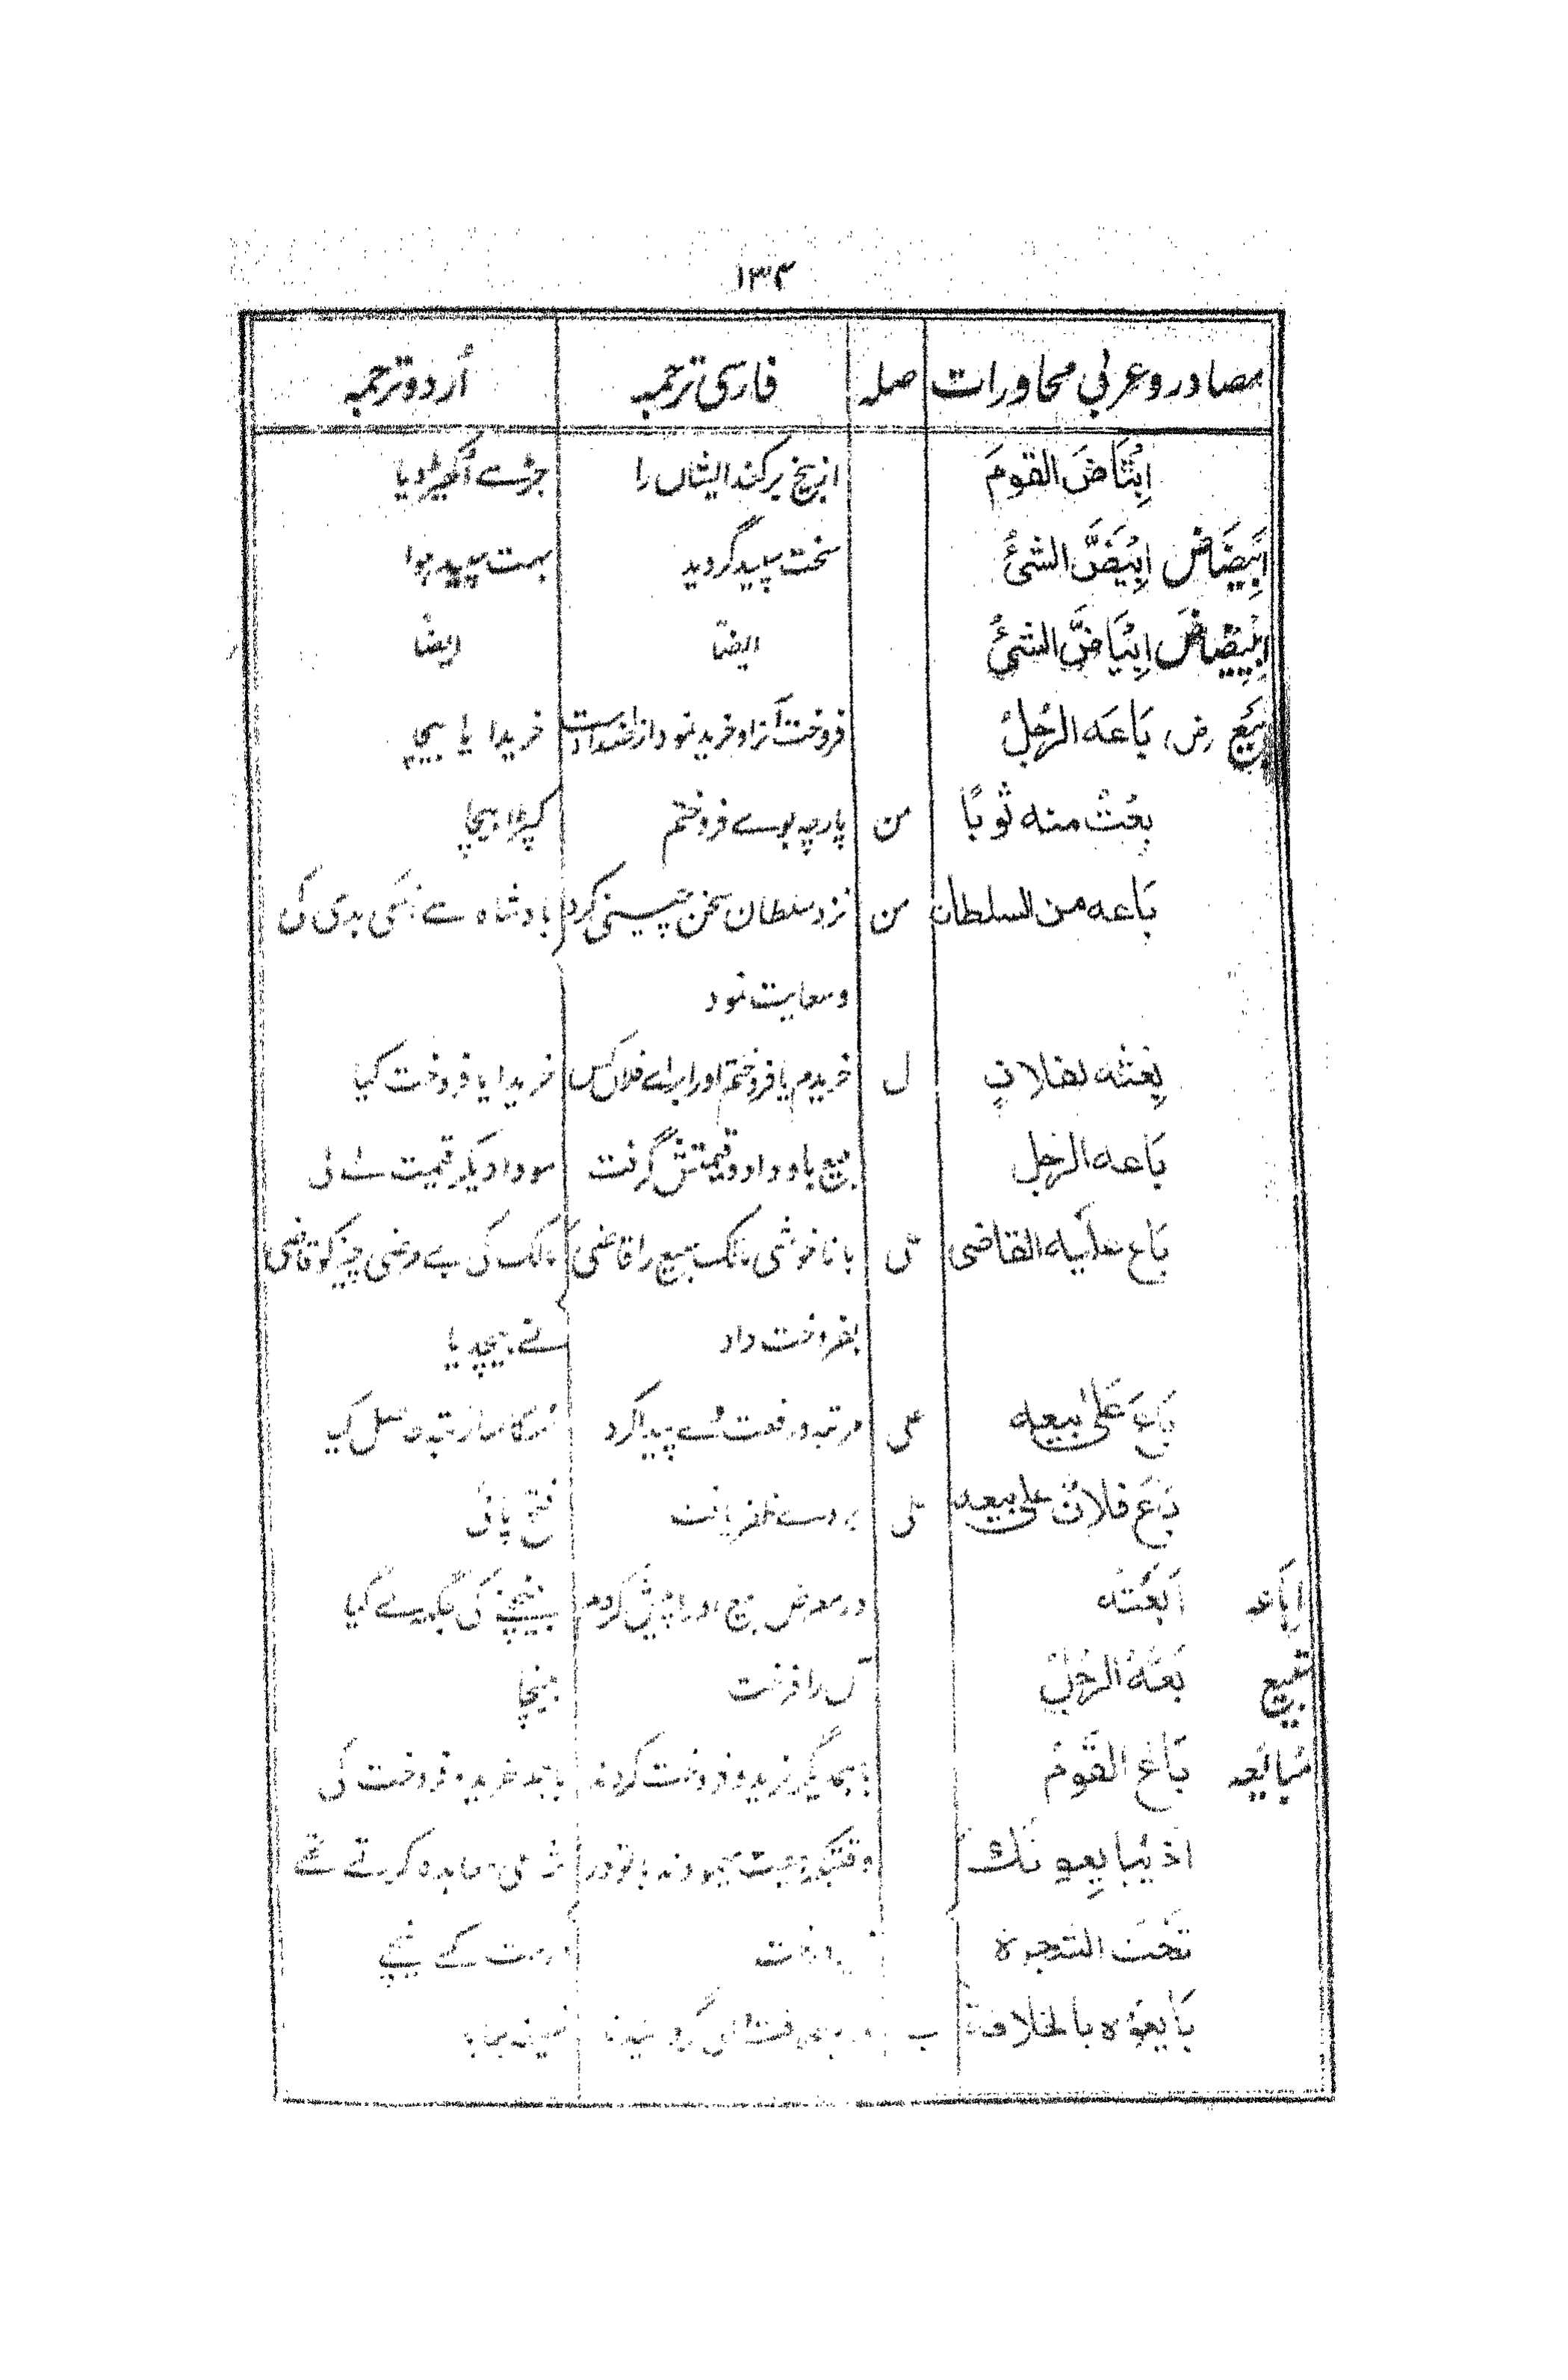 ۱۳۴
مصادر و عربی محاورات صلہ فارسی ترجمہ اُردو ترجمہ
اِبْتَاضَ القومَ از بیخ برکند ایشاں را جڑ سے اُکھیڑ دیا
اِبْيِضَاض اِبْيَضَّ الشئُ سخت سپید گردید بہت سپید ہوا
اِبْيِيْضَاض اِبْيَاضَّ الشئُ ایضاً ایضاً
بَيْع (ض) بَاعَه الرجُلُ فروخت آنرا و خرید نمود خریدا یا بیچا
بِعْتُ منه ثوبًا من پارچہ بوے فروختم کپڑا بیچا
بَاعه من السلطان من نزد سلطان سخن چینی کرد بادشاہ سے اسکی بدی کی
و سعایت نمود
بِعْتُه لفلانٍ ل خریدم یا فروختم اورا براے فلاں کس خریدا یا فروخت کیا
بَاعه الرجل مبیع باو داد و قیمتش گرفت سودا دیکر قیمت لے لی
بَاع عليه القاضى على با ناخوشی مالک مبیع را قاضی مالک کی بے مرضی چیز کو قاضی
بفروخت داد نے بیچدیا
بَاعَ عَلىٰ بيعه على مرتبہ و رفعت وے پیدا کرد اُسکا سا رتبہ حاصل کیا
بَاعَ فلانٌ على بيعه على بر وے ظفر یافت فتح پائی
اِبَاعَه اَبَعْتُه در معرض بیع اورا پیش کردم بیچنے کی جگہ لے گیا
تبييع بَيَّعَهُ الرجُلُ آں را فروخت بینچا
مُبَايَعه بَايَعَ القَومُ باہمدیگر خرید و فروخت کردند باہم خرید و فروخت کی
اذ يُبَايِعُونَكَ وقتیکہ بیعت مینمودند با تو در معاہدہ کرتے تھے
تَحْتَ الشَّجرة درخت درخت کے نیچے
بَايَعُوْه بالخلافة ب